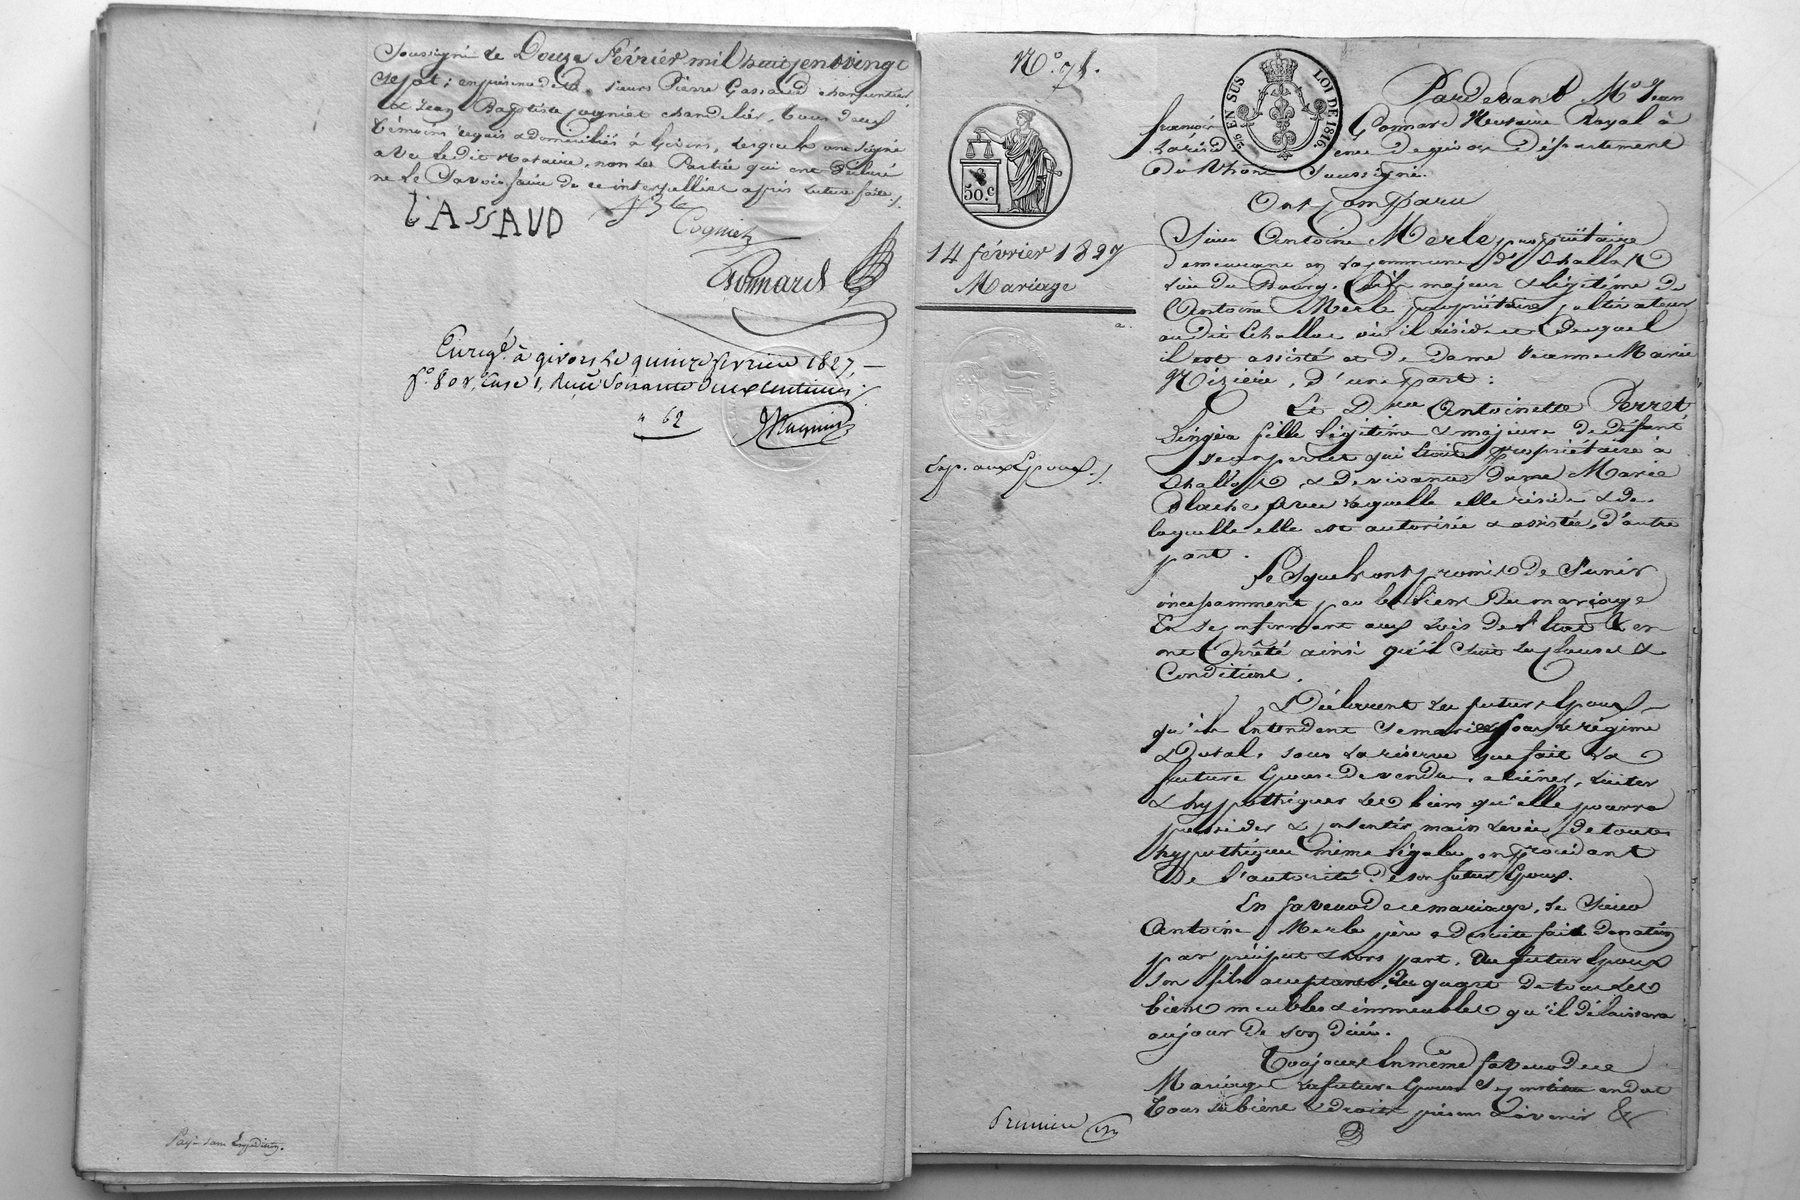 Soussigné le Douze Février mil huit cent vingt
sept; en présence de sieurs Pierre Gassaud charpentier
& Jean Baptiste Cogniet chandelier, tous deux
témoins requis & domiciliés à Givors, lesquels ont signé
avec ledit Notaire, non les Parties qui ont déclaré
ne le Savoir faire de ce interpellées après lecture faite ./.
GASSAUD
J Bte
Cogniet
Gonnard
Enregé à givors le quinze février 1827,
fo 80 case 1, Reçu Soixante deux centimes
" 62
Pay. sans Expédition.
No. 71.
EN SUS
LOI DE 1816.
50.c
14 février 1827
Mariage
Exp. aux Epoux ./.
Première
Pardevant Me Jean
françois Gonnard Notaire Royal à
la résidence de givors Département
du Rhône Soussigné.
Ont Comparu
Sieur Antoine Merle propriétaire
demeurant en la commune d'Echallas
lieu du Bourg, fils majeur & légitime de
Antoine Merle propriétaire cultivateur
audit Echallas où il réside & duquel
il est assisté et de dame Jeanne Marie
Mézière, d'une part:
Et Dlle Antoinette Perret
lingère fille légitime & majeure de défunt
Jean perret qui était propriétaire à
Echallas & de vivante Dame Marie
Blache avec laquelle elle réside & de
laquelle elle est autorisée & assistée, d'autre
part.
Lesquels ont promis de S'unir
incessamment par les liens du mariage
En se conformant aux Lois de l'Etat & en
ont arrêté ainsi qu'il suit les clauses &
Conditions.
Déclarent les futurs Epoux
qu'ils Entendent se marier sous le régime
Dotal, sous la réserve que fait la
future Epouse de vendre, aliéner, traiter
& hypothéquer les biens qu'elle pourra
posséder & consentir main levée de toutes
hypothèques même légales, en procédant
De l'autorité de son futur Epoux.
En faveur de ce mariage, le Sieur
Antoine Merle père a desuite fait donation
par préciput & hors part, au futur Epoux
son fils acceptant, du quart de tous les
biens meubles & immeubles qu'il délaissera
au jour de son décès.
Toujours En même faveur de ce
Mariage la future Epouse Se constitue en dot
tous ses biens & droits présens & à venir &